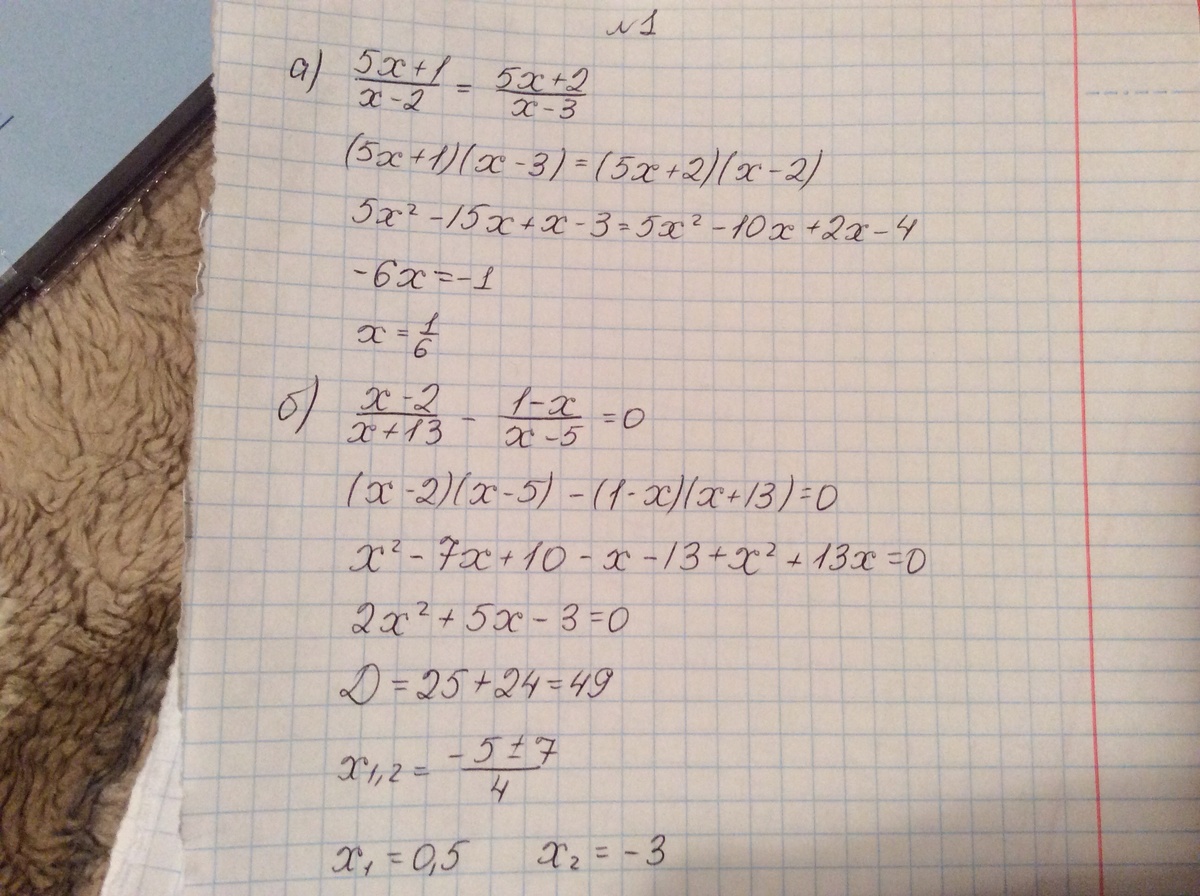 №1
а) (5x+1)/(x-2) = (5x+2)/(x-3)
(5x+1)(x-3)=(5x+2)(x-2)
5x²-15x+x-3=5x²-10x+2x-4
-6x=-1
x=1/6
б) (x-2)/(x+13) - (1-x)/(x-5) =0
(x-2)(x-5)-(1-x)(x+13)=0
x²-7x+10-x-13+x²+13x=0
2x²+5x-3=0
D=25+24=49
x₁,₂=(-5±7)/4
x₁=0,5 x₂=-3